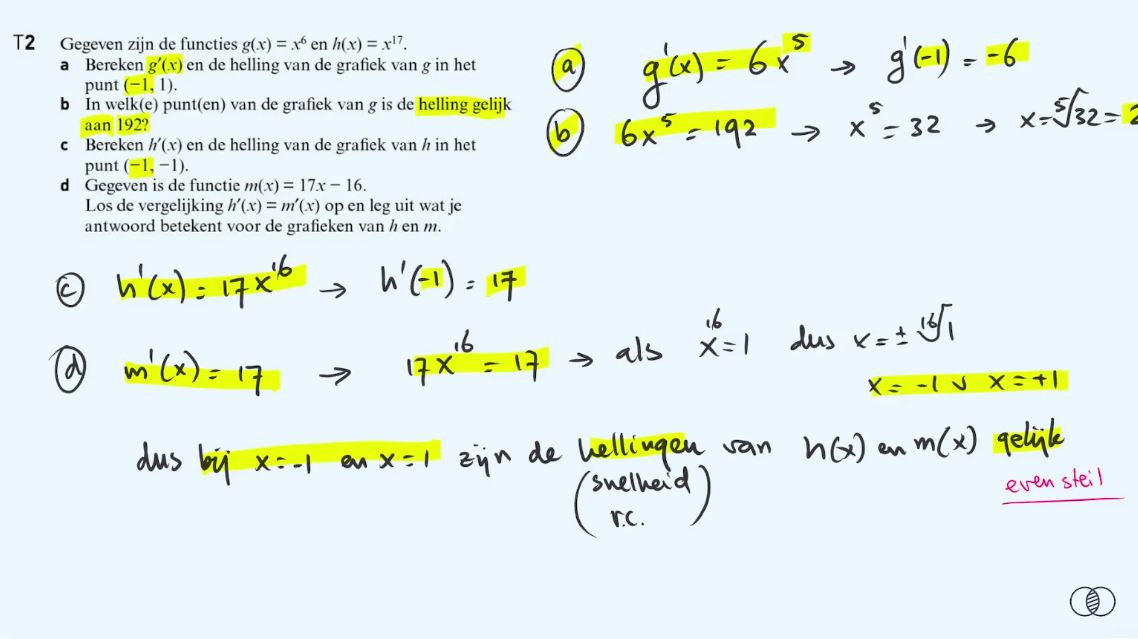 T2 Gegeven zijn de functies g(x) = x⁶ en h(x) = x¹⁷.
a Bereken g′(x) en de helling van de grafiek van g in het
punt (−1, 1).
b In welk(e) punt(en) van de grafiek van g is de helling gelijk
aan 192?
c Bereken h′(x) en de helling van de grafiek van h in het
punt (−1, −1).
d Gegeven is de functie m(x) = 17x − 16.
Los de vergelijking h′(x) = m′(x) op en leg uit wat je
antwoord betekent voor de grafieken van h en m.
a g'(x) = 6x⁵ → g'(-1) = -6
b 6x⁵ = 192 → x⁵ = 32 → x = ⁵√32 = 2
c h'(x) = 17x¹⁶ → h'(-1) = 17
d m'(x) = 17 → 17x¹⁶ = 17 → als x¹⁶ = 1 dus x = ± ¹⁶√1
x = -1 v x = +1
dus bij x = -1 en x = 1 zijn de hellingen van h(x) en m(x) gelijk
(snelheid
r.c.)
even steil